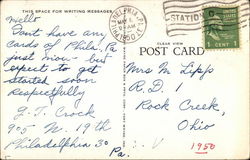 THIS SPACE FOR WRITING MESSAGES
Hello
Dont have any
cards of Phila, Pa
just now - but
expect to get
started soon
Respectfully
J. T. Crock
905 - N. 19th
Philadelphia 30
Pa.
PHILADELPHIA, PA.
1950
STATION
1¢
CLEAR VIEW
POST CARD
Mrs M Lipp
R.D. 1
Rock Creek,
Ohio
V. 1950